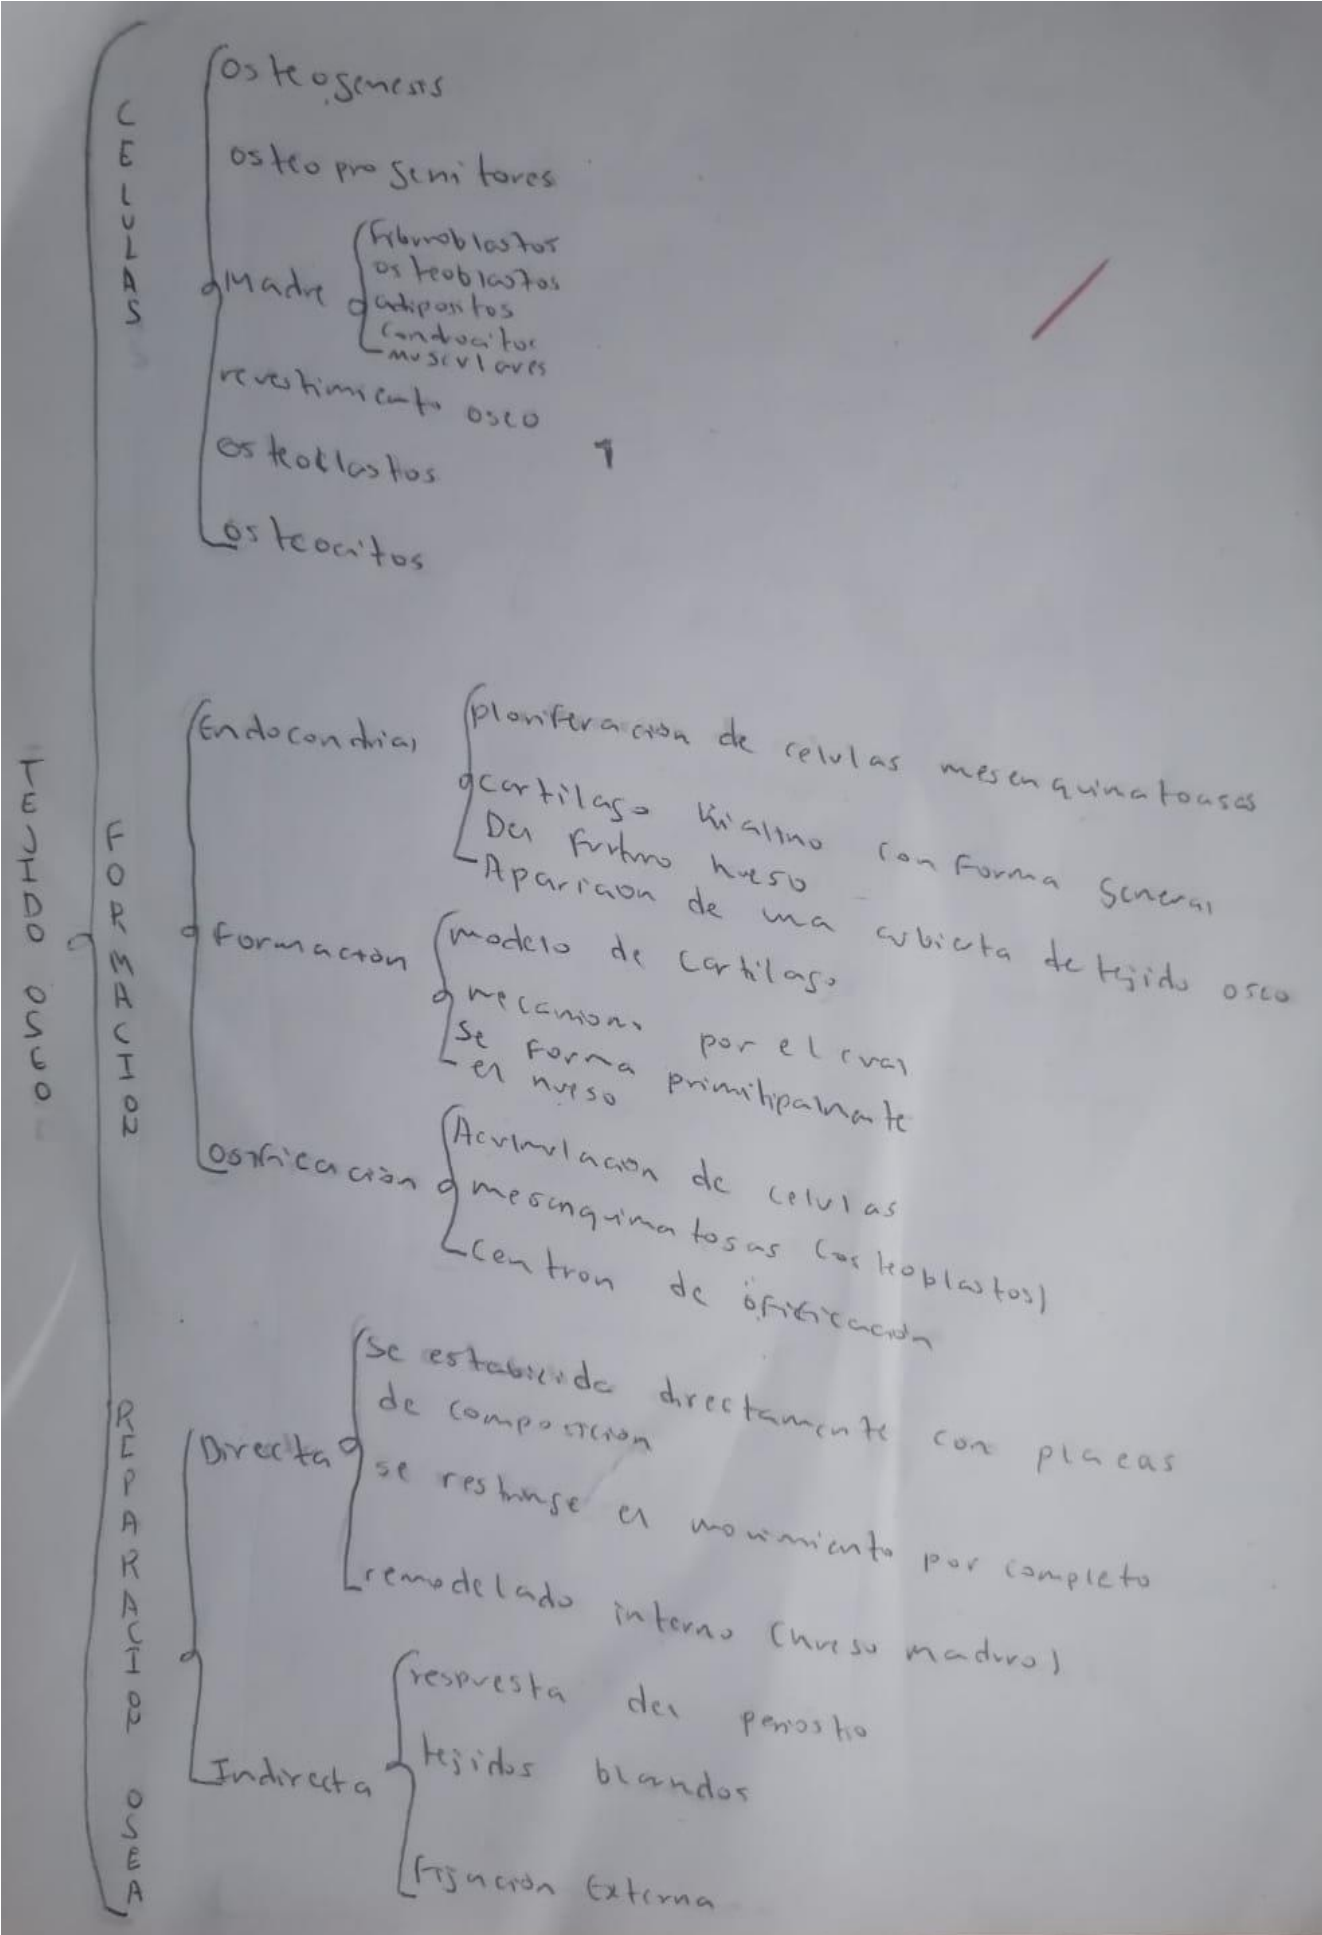 TEJIDO OSEO
CELULAS
Osteogenesis
osteoprogenitores
Madre
Fibroblastos
osteoblastos
adipositos
Condrocitos
musculares
revestimiento oseo
osteoclastos
1
osteocitos
FORMACION
Endocondrial
ploriferación de celulas mesenquinatousas
cartilago hialino con forma general
Del futuro hueso
Aparición de una cubierta de tejido oseo
formación
modelo de cartilago
mecanismo por el cual
se forma
el hueso
osificación
Acumulación de celulas
mesenquimatosas (osteoblastos)
Centron de
REPARACION OSEA
Directa
Se directamente con placas
de composición
se restringe el movimiento por completo
remodelado interno (hueso maduro)
Indirecta
respuesta del periostio
tejidos blandos
Fijación Externa